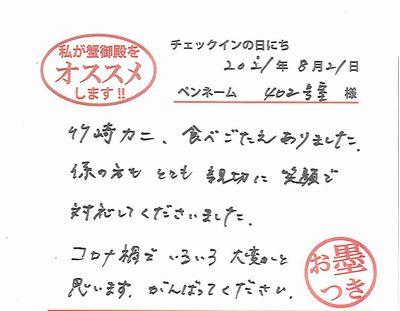 私が蟹御殿を
オススメ
します!!
チェックインの日にち
2021年 8月21日
ペンネーム 402号室 様
竹崎カニ、食べごたえありました。
係の方も とても 親切に 笑顔で
対応してくださいました。
コロナ禍で いろいろ 大変かと
思います。がんばってください。
お墨
つき